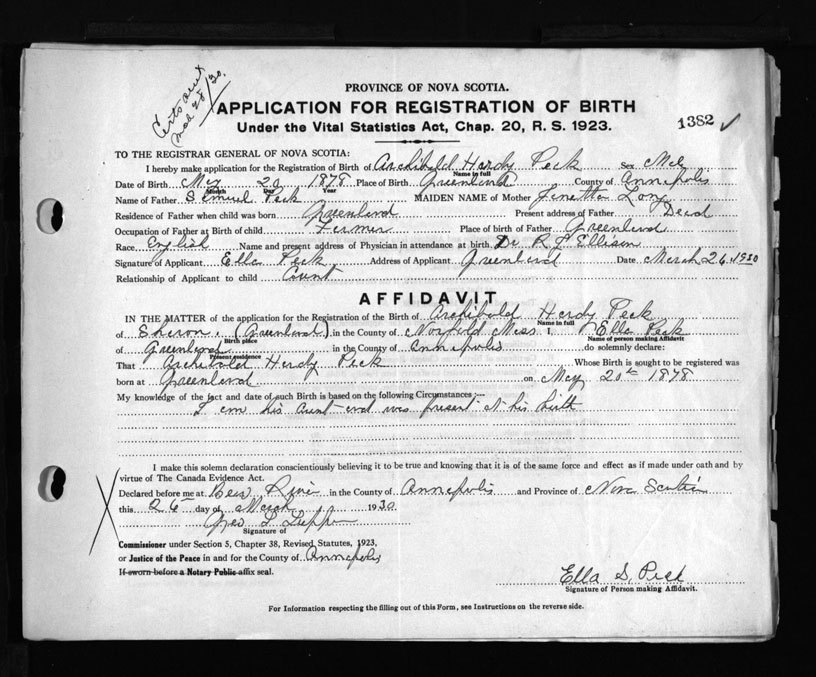 Certs sent
Mar 28/30.
PROVINCE OF NOVA SCOTIA.
APPLICATION FOR REGISTRATION OF BIRTH
Under the Vital Statistics Act, Chap. 20, R. S. 1923.
1382 ✓
TO THE REGISTRAR GENERAL OF NOVA SCOTIA:
I hereby make application for the Registration of Birth of Archibald Hardy Peck Sex Male
Name in full
Date of Birth May 20 1878 Place of Birth Greenland County of Annapolis
Month Day Year
Name of Father Samuel Peck MAIDEN NAME of Mother Jenetta Long
Residence of Father when child was born Greenland Present address of Father Dead
Occupation of Father at Birth of child Farmer Place of birth of Father Greenland
Race English Name and present address of Physician in attendance at birth Dr R J Ellison
Signature of Applicant Ella Peck Address of Applicant Greenland Date March 26, 1930
Relationship of Applicant to child Aunt
AFFIDAVIT
IN THE MATTER of the application for the Registration of the Birth of Archibald Hardy Peck
Name in full
of Sharon. (Greenland) in the County of Norfold Mass I, Ella Peck
Birth place Name of person making Affidavit
of Greenland in the County of Annapolis do solemnly declare:
Present residence
That Archibald Hardy Peck Whose Birth is sought to be registered was
born at Greenland on May 20th 1878
My knowledge of the fact and date of such Birth is based on the following Circumstances:—
I am his Aunt and was present at his birth
I make this solemn declaration conscientiously believing it to be true and knowing that it is of the same force and effect as if made under oath and by
virtue of The Canada Evidence Act.
Declared before me at Bear River in the County of Annapolis and Province of Nova Scotia
this 26 day of March 1930
Geo L
Signature of
Commissioner under Section 5, Chapter 38, Revised Statutes, 1923,
or Justice of the Peace in and for the County of Annapolis
If sworn before a Notary Public affix seal.
Ella S. Peck
Signature of Person making Affidavit.
For Information respecting the filling out of this Form, see Instructions on the reverse side.